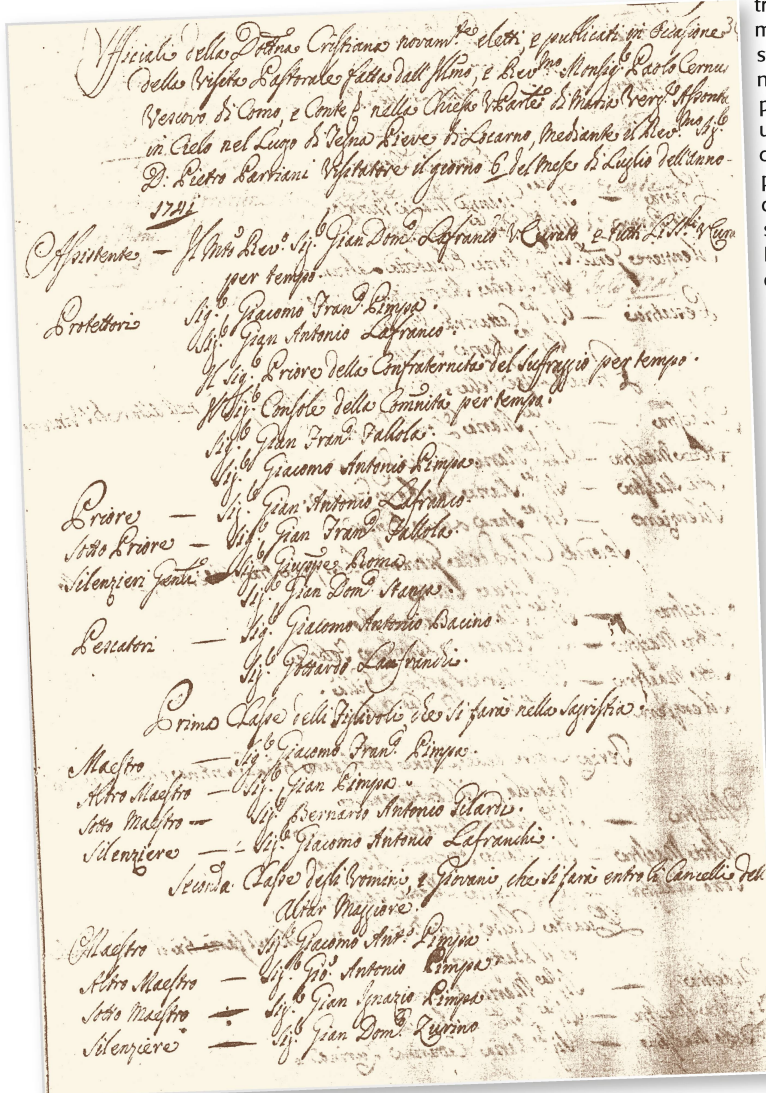 Ufficiali della Dottna Cristiana novamte eletti, e publicati in occasione
della Visita Pastorale fatta dall' Illmo, e Revmo Monsigr Paolo Cernu
Vescovo di Como, e Conte &. nella Chiesa VParle di Maria Verg. Assonta
in Cielo nel Luogo di Tegna Pieve di Locarno, mediante il Revmo Sigr
D. Pietro Parriani Visitatore il giorno 6 del Mese di Luglio dell'anno
1741
Assistente — Il Mto Revo Sigr Gian Domo Lafranco VCurato e tutti Li VCur
per tempo.
Protettori Sigr Giacomo Frano Pimpa.
Sigr Gian Antonio Lafranco.
Il Sigr Priore della Confraternita del Suffragio per tempo.
Il Sigr Console della Comnità per tempo.
Sigr Gian Frano Fallola.
Sigr Giacomo Antonio Pimpa.
Priore — Sigr Gian Antonio Lafranco.
Sotto Priore — Sigr Gian Frano Fallola.
Silenzieri Genli Sigr Giuseppe Roma.
Sigr Gian Domo Stanga.
Pescatori — Sigr Giacomo Antonio Bacino.
Sigr Gottardo Lanfranchi.
Prima Classe delli Figlivoli che si farà nella Sagristia.
Maestro — Sigr Giacomo Frano Pimpa.
Altro Maestro — Sigr Gian Pimpa.
Sotto Maestro — Sigr Bernardo Antonio Gilardi.
Silenziere — Sigr Giacomo Antonio Lafranchi.
Seconda Classe degli Vomini, e Giovani, che si farà entro li Cancelli dell
Altar Maggiore.
Maestro — Sigr Giacomo Anto Pimpa
Altro Maestro — Sigr Gio: Antonio Pimpa
Sotto Maestro — Sigr Gian Ignazio Pimpa
Silenziere — Sigr Gian Domo Zurino